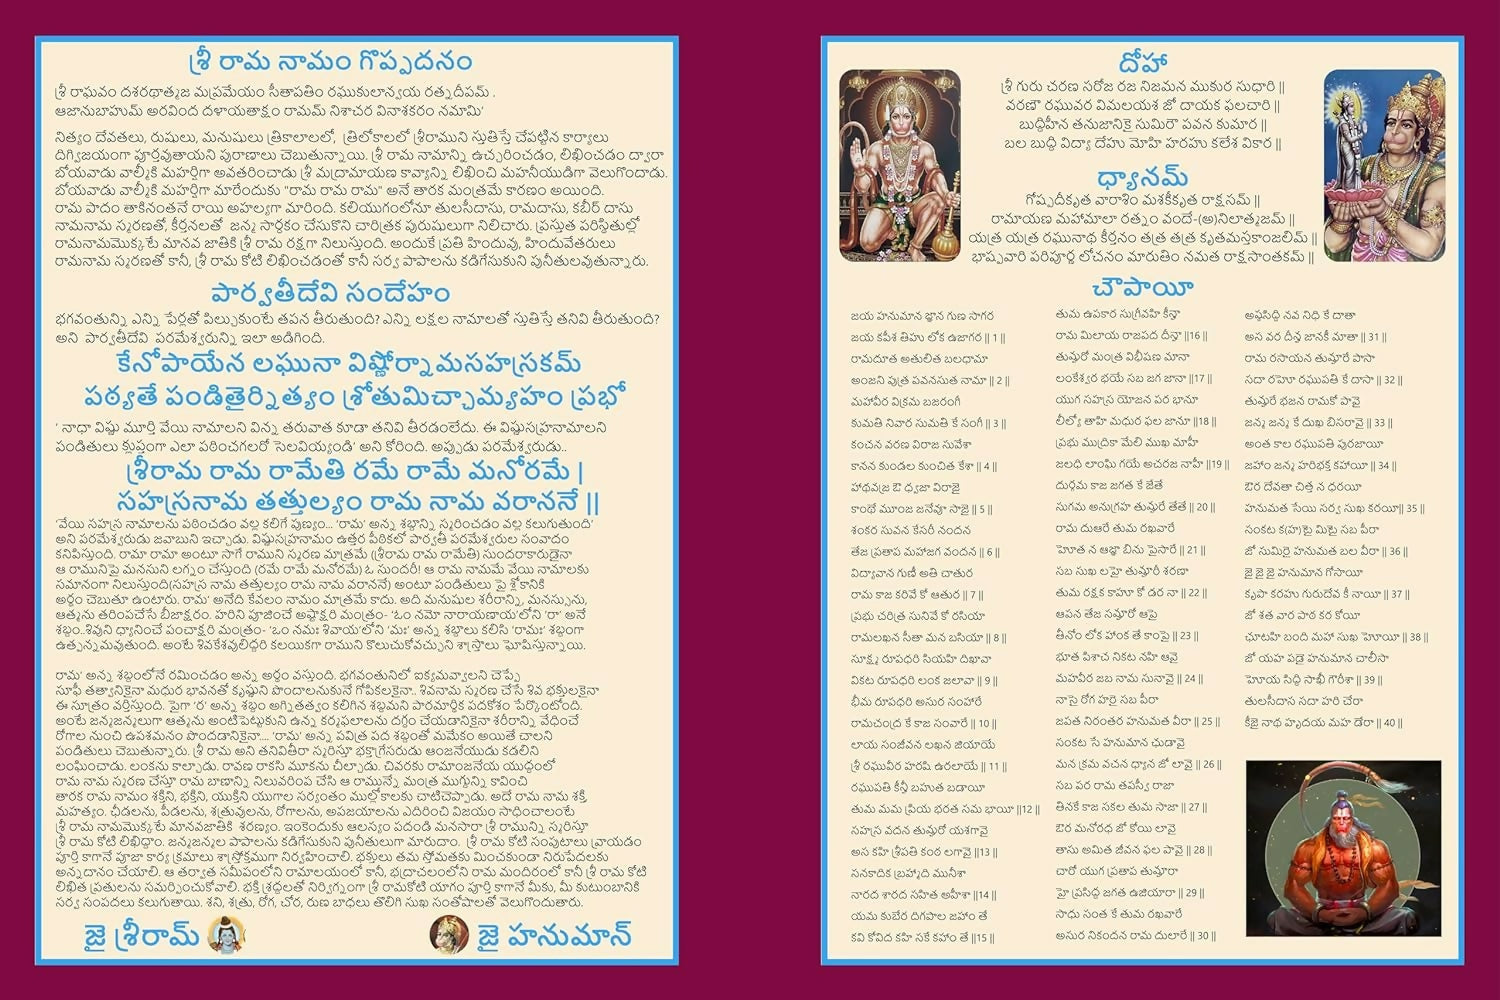 శ్రీ రామ నామం గొప్పదనం
శ్రీ రాఘవం దశరథాత్మజ మప్రమేయం సీతాపతిం రఘుకులాన్వయ రత్న దీపమ్ .
ఆజానుబాహుమ్ అరవింద దళాయతాక్షం రామమ్ నిశాచర వినాశకరం నమామి'
నిత్యం దేవతలు, రుషులు, మనుషులు త్రికాలాలలో, త్రిలోకాలలో శ్రీరాముని స్తుతిస్తే చేపట్టిన కార్యాలు
దిగ్విజయంగా పూర్తవుతాయని పురాణాలు చెబుతున్నాయి. శ్రీ రామ నామాన్ని ఉచ్చరించడం, లిఖించడం ద్వారా
బోయవాడు వాల్మీకి మహర్షిగా అవతరించాడు శ్రీ మద్రామాయణ కావ్యాన్ని లిఖించి మహనీయుడిగా వెలుగొందాడు.
బోయవాడు వాల్మీకి మహర్షిగా మారేందుకు "రామ రామ రామ" అనే తారక మంత్రమే కారణం అయింది.
రామ పాదం తాకినంతనే రాయి అహల్యగా మారింది. కలియుగంలోనూ తులసీదాసు, రామదాసు, కబీర్ దాసు
నామనామ స్మరణతో, కీర్తనలతో జన్మ సార్థకం చేసుకొని చారిత్రక పురుషులుగా నిలిచారు. ప్రస్తుత పరిస్థితుల్లో
రామనామమొక్కటే మానవ జాతికి శ్రీ రామ రక్షగా నిలుస్తుంది. అందుకే ప్రతి హిందువు, హిందువేతరులు
రామనామ స్మరణతో కానీ, శ్రీ రామ కోటి లిఖించడంతో కానీ సర్వ పాపాలను కడిగేసుకుని పునీతులవుతున్నారు.
పార్వతీదేవి సందేహం
భగవంతున్ని ఎన్ని పేర్లతో పిల్చుకుంటే తపన తీరుతుంది? ఎన్ని లక్షల నామాలతో స్తుతిస్తే తనివి తీరుతుంది?
అని పార్వతీదేవి పరమేశ్వరున్ని ఇలా అడిగింది.
కేనోపాయేన లఘునా విష్ణోర్నామసహస్రకమ్
పఠ్యతే పండితైర్నిత్యం శ్రోతుమిచ్ఛామ్యహం ప్రభో
' నాధా విష్ణు మూర్తి వేయి నామాలని విన్న తరువాత కూడా తనివి తీరడంలేదు. ఈ విష్ణుసహ్రనామాలని
పండితులు క్లుప్తంగా ఎలా పఠించగలరో సెలవియ్యండి' అని కోరింది. అప్పుడు పరమేశ్వరుడు..
శ్రీరామ రామ రామేతి రమే రామే మనోరమే |
సహస్రనామ తత్తుల్యం రామ నామ వరాననే ||
'వేయి సహస్ర నామాలను పఠించడం వల్ల కలిగే పుణ్యం... 'రామ' అన్న శబ్దాన్ని స్మరించడం వల్ల కలుగుతుంది'
అని పరమేశ్వరుడు జవాబుని ఇచ్చాడు. విష్ణుసహ్రనామం ఉత్తర పీఠికలో పార్వతీ పరమేశ్వరుల సంవాదం
కనిపిస్తుంది. రామా రామా అంటూ సాగే రాముని స్మరణ మాత్రమే (శ్రీరామ రామ రామేతి) సుందరాకారుడైనా
ఆ రామునిపై మనసుని లగ్నం చేస్తుంది (రమే రామే మనోరమే) ఓ సుందరీ! ఆ రామ నామమే వేయి నామాలకు
సమానంగా నిలుస్తుంది(సహస్ర నామ తత్తుల్యం రామ నామ వరాననే) అంటూ పండితులు పై శ్లోకానికి
అర్థం చెబుతూ ఉంటారు. రామ' అనేది కేవలం నామం మాత్రమే కాదు. అది మనుషుల శరీరాన్ని, మనస్సును,
ఆత్మను తరింపచేసే బీజాక్షరం. హరిని పూజించే అష్టాక్షరి మంత్రం- 'ఓం నమో నారాయణాయ'లోని 'రా' అనే
శబ్దం..శివుని ధ్యానించే పంచాక్షరి మంత్రం- 'ఓం నమః శివాయ'లోని 'మః' అన్న శబ్దాలు కలిసి 'రామః' శబ్దంగా
ఉత్పన్నమవుతుంది. అంటే శివకేశవులిద్దరి కలయికగా రాముని కొలుచుకోవచ్చుని శాస్త్రాలు ఘోషిస్తున్నాయి.
రామ' అన్న శబ్దంలోనే రమించడం అన్న అర్థం వస్తుంది. భగవంతునిలో ఐక్యమవ్వాలని చెప్పే
సూఫీ తత్వానికైనా మధుర భావనతో కృష్ణుని పొందాలనుకునే గోపికలకైనా.. శివనామ స్మరణ చేసే శివ భక్తులకైనా
ఈ సూత్రం వర్తిస్తుంది. పైగా 'ర' అన్న శబ్దం అగ్నితత్వం కలిగిన శబ్దమని పారమార్థిక పదకోశం పేర్కొంటోంది.
అంటే జన్మజన్మలుగా ఆత్మను అంటిపెట్టుకుని ఉన్న కర్మఫలాలను దగ్ధం చేయడానికైనా శరీరాన్ని వేధించే
రోగాల నుంచి ఉపశమనం పొందడానికైనా.... 'రామ' అన్న పవిత్ర పద శబ్దంతో మమేకం అయితే చాలని
పండితులు చెబుతున్నారు. శ్రీ రామ అని తనివితీరా స్మరిస్తూ భక్తాగ్రేసరుడు ఆంజనేయుడు కడలిని
లంఘించాడు. లంకను కాల్చాడు. రావణ రాకసి మూకను చీల్చాడు. చివరకు రామాంజనేయ యుద్ధంలో
రామ నామ స్మరణ చేస్తూ రామ బాణాన్ని నిలువరింప చేసి ఆ రామున్నే మంత్ర ముగ్ధున్ని కావించి
తారక రామ నామం శక్తిని, భక్తిని, యుక్తిని యుగాల సర్యంతం ముల్లోకాలకు చాటిచెప్పాడు. అదే రామ నామ శక్తి
మహత్యం. ఛీడలను, పీడలను, శత్రువులను, రోగాలను, అపజయాలను ఎదిరించి విజయం సాధించాలంటే
శ్రీ రామ నామమొక్కటే మానవజాతికి శరణ్యం. ఇంకెందుకు ఆలస్యం పదండి మనసారా శ్రీ రామున్ని స్మరిస్తూ
శ్రీ రామ కోటి లిఖిద్దాం. జన్మజన్మల పాపాలను కడిగేసుకుని పునీతులుగా మారుదాం. శ్రీ రామ కోటి సంపుటాలు వ్రాయడం
పూర్తి కాగానే పూజా కార్య క్రమాలు శాస్త్రోక్తముగా నిర్వహించాలి. భక్తులు తమ స్తోమతకు మించకుండా నిరుపేదలకు
అన్నదానం చేయాలి. ఆ తర్వాత సమీపంలోని రామాలయంలో కానీ, భద్రాచలంలోని రామ మందిరంలో కానీ శ్రీ రామ కోటి
లిఖిత ప్రతులను సమర్పించుకోవాలి. భక్తి శ్రద్ధలతో నిర్విగ్నంగా శ్రీ రామకోటి యాగం పూర్తి కాగానే మీకు, మీ కుటుంబానికి
సర్వ సంపదలు కలుగుతాయి. శని, శత్రు, రోగ, చోర, రుణ బాధలు తొలిగి సుఖ సంతోషాలతో వెలుగొందుతారు.
జై శ్రీరామ్ జై హనుమాన్
దోహా
శ్రీ గురు చరణ సరోజ రజ నిజమన ముకుర సుధారి ||
వరణౌ రఘువర విమలయశ జో దాయక ఫలచారి ||
బుద్ధిహీన తనుజానికై సుమిరౌ పవన కుమార ||
బల బుద్ధి విద్యా దేహు మోహి హరహు కలేశ వికార ||
ధ్యానమ్
గోష్పదీకృత వారాశిం మశకీకృత రాక్షసమ్ ||
రామాయణ మహామాలా రత్నం వందే-(అ)నిలాత్మజమ్ ||
యత్ర యత్ర రఘునాథ కీర్తనం తత్ర తత్ర కృతమస్తకాంజలిమ్ ||
భాష్పవారి పరిపూర్ణ లోచనం మారుతిం నమత రాక్షసాంతకమ్ ||
చౌపాయీ
జయ హనుమాన జ్ఞాన గుణ సాగర
జయ కపీశ తిహు లోక ఉజాగర || 1 ||
రామదూత అతులిత బలధామా
అంజని పుత్ర పవనసుత నామా || 2 ||
మహావీర విక్రమ బజరంగీ
కుమతి నివార సుమతి కే సంగీ || 3 ||
కంచన వరణ విరాజ సువేశా
కానన కుండల కుంచిత కేశా || 4 ||
హాథవజ్ర ఔ ధ్వజా విరాజై
కాంథే మూంజ జనేవూ సాజై || 5 ||
శంకర సువన కేసరీ నందన
తేజ ప్రతాప మహాజగ వందన || 6 ||
విద్యావాన గుణీ అతి చాతుర
రామ కాజ కరివే కో ఆతుర || 7 ||
ప్రభు చరిత్ర సునివే కో రసియా
రామలఖన సీతా మన బసియా || 8 ||
సూక్ష్మ రూపధరి సియహి దిఖావా
వికట రూపధరి లంక జలావా || 9 ||
భీమ రూపధరి అసుర సంహారే
రామచంద్ర కే కాజ సంవారే || 10 ||
లాయ సంజీవన లఖన జియాయే
శ్రీ రఘువీర హరషి ఉరలాయే || 11 ||
రఘుపతి కీన్హీ బహుత బడాయీ
తుమ మమ ప్రియ భరత సమ భాయీ ||12 ||
సహస్ర వదన తుమ్హరో యశగావై
అస కహి శ్రీపతి కంఠ లగావై ||13 ||
సనకాదిక బ్రహ్మాది మునీశా
నారద శారద సహిత అహీశా ||14 ||
యమ కుబేర దిగపాల జహాం తే
కవి కోవిద కహి సకే కహాం తే ||15 ||
తుమ ఉపకార సుగ్రీవహి కీన్హా
రామ మిలాయ రాజపద దీన్హా ||16 ||
తుమ్హరో మంత్ర విభీషణ మానా
లంకేశ్వర భయే సబ జగ జానా ||17 ||
యుగ సహస్ర యోజన పర భానూ
లీల్యో తాహి మధుర ఫల జానూ ||18 ||
ప్రభు ముద్రికా మేలి ముఖ మాహీ
జలధి లాంఘి గయే అచరజ నాహీ ||19 ||
దుర్గమ కాజ జగత కే జేతే
సుగమ అనుగ్రహ తుమ్హరే తేతే || 20 ||
రామ దుఆరే తుమ రఖవారే
హోత న ఆజ్ఞా బిను పైసారే || 21 ||
సబ సుఖ లహై తుమ్హారీ శరణా
తుమ రక్షక కాహూ కో డర నా || 22 ||
ఆపన తేజ సమ్హారో ఆపై
తీనోం లోక హాంక తే కాంపై || 23 ||
భూత పిశాచ నికట నహి ఆవై
మహవీర జబ నామ సునావై || 24 ||
నాసై రోగ హరై సబ పీరా
జపత నిరంతర హనుమత వీరా || 25 ||
సంకట సే హనుమాన ఛుడావై
మన క్రమ వచన ధ్యాన జో లావై || 26 ||
సబ పర రామ తపస్వీ రాజా
తినకే కాజ సకల తుమ సాజా || 27 ||
ఔర మనోరధ జో కోయి లావై
తాసు అమిత జీవన ఫల పావై || 28 ||
చారో యుగ ప్రతాప తుమ్హారా
హై ప్రసిద్ధ జగత ఉజియారా || 29 ||
సాధు సంత కే తుమ రఖవారే
అసుర నికందన రామ దులారే || 30 ||
అష్ఠసిద్ధి నవ నిధి కే దాతా
అస వర దీన్హ జానకీ మాతా || 31 ||
రామ రసాయన తుమ్హారే పాసా
సదా రహో రఘుపతి కే దాసా || 32 ||
తుమ్హరే భజన రామకో పావై
జన్మ జన్మ కే దుఖ బిసరావై || 33 ||
అంత కాల రఘుపతి పురజాయీ
జహాం జన్మ హరిభక్త కహాయీ || 34 ||
ఔర దేవతా చిత్త న ధరయీ
హనుమత సేయి సర్వ సుఖ కరయీ|| 35 ||
సంకట క(హ)టై మిటై సబ పీరా
జో సుమిరై హనుమత బల వీరా || 36 ||
జై జై జై హనుమాన గోసాయీ
కృపా కరహు గురుదేవ కీ నాయీ || 37 ||
జో శత వార పాఠ కర కోయీ
ఛూటహి బంది మహా సుఖ హోయీ || 38 ||
జో యహ పడై హనుమాన చాలీసా
హోయ సిద్ధి సాఖీ గౌరీశా || 39 ||
తులసీదాస సదా హరి చేరా
కీజై నాథ హృదయ మహ డేరా || 40 ||